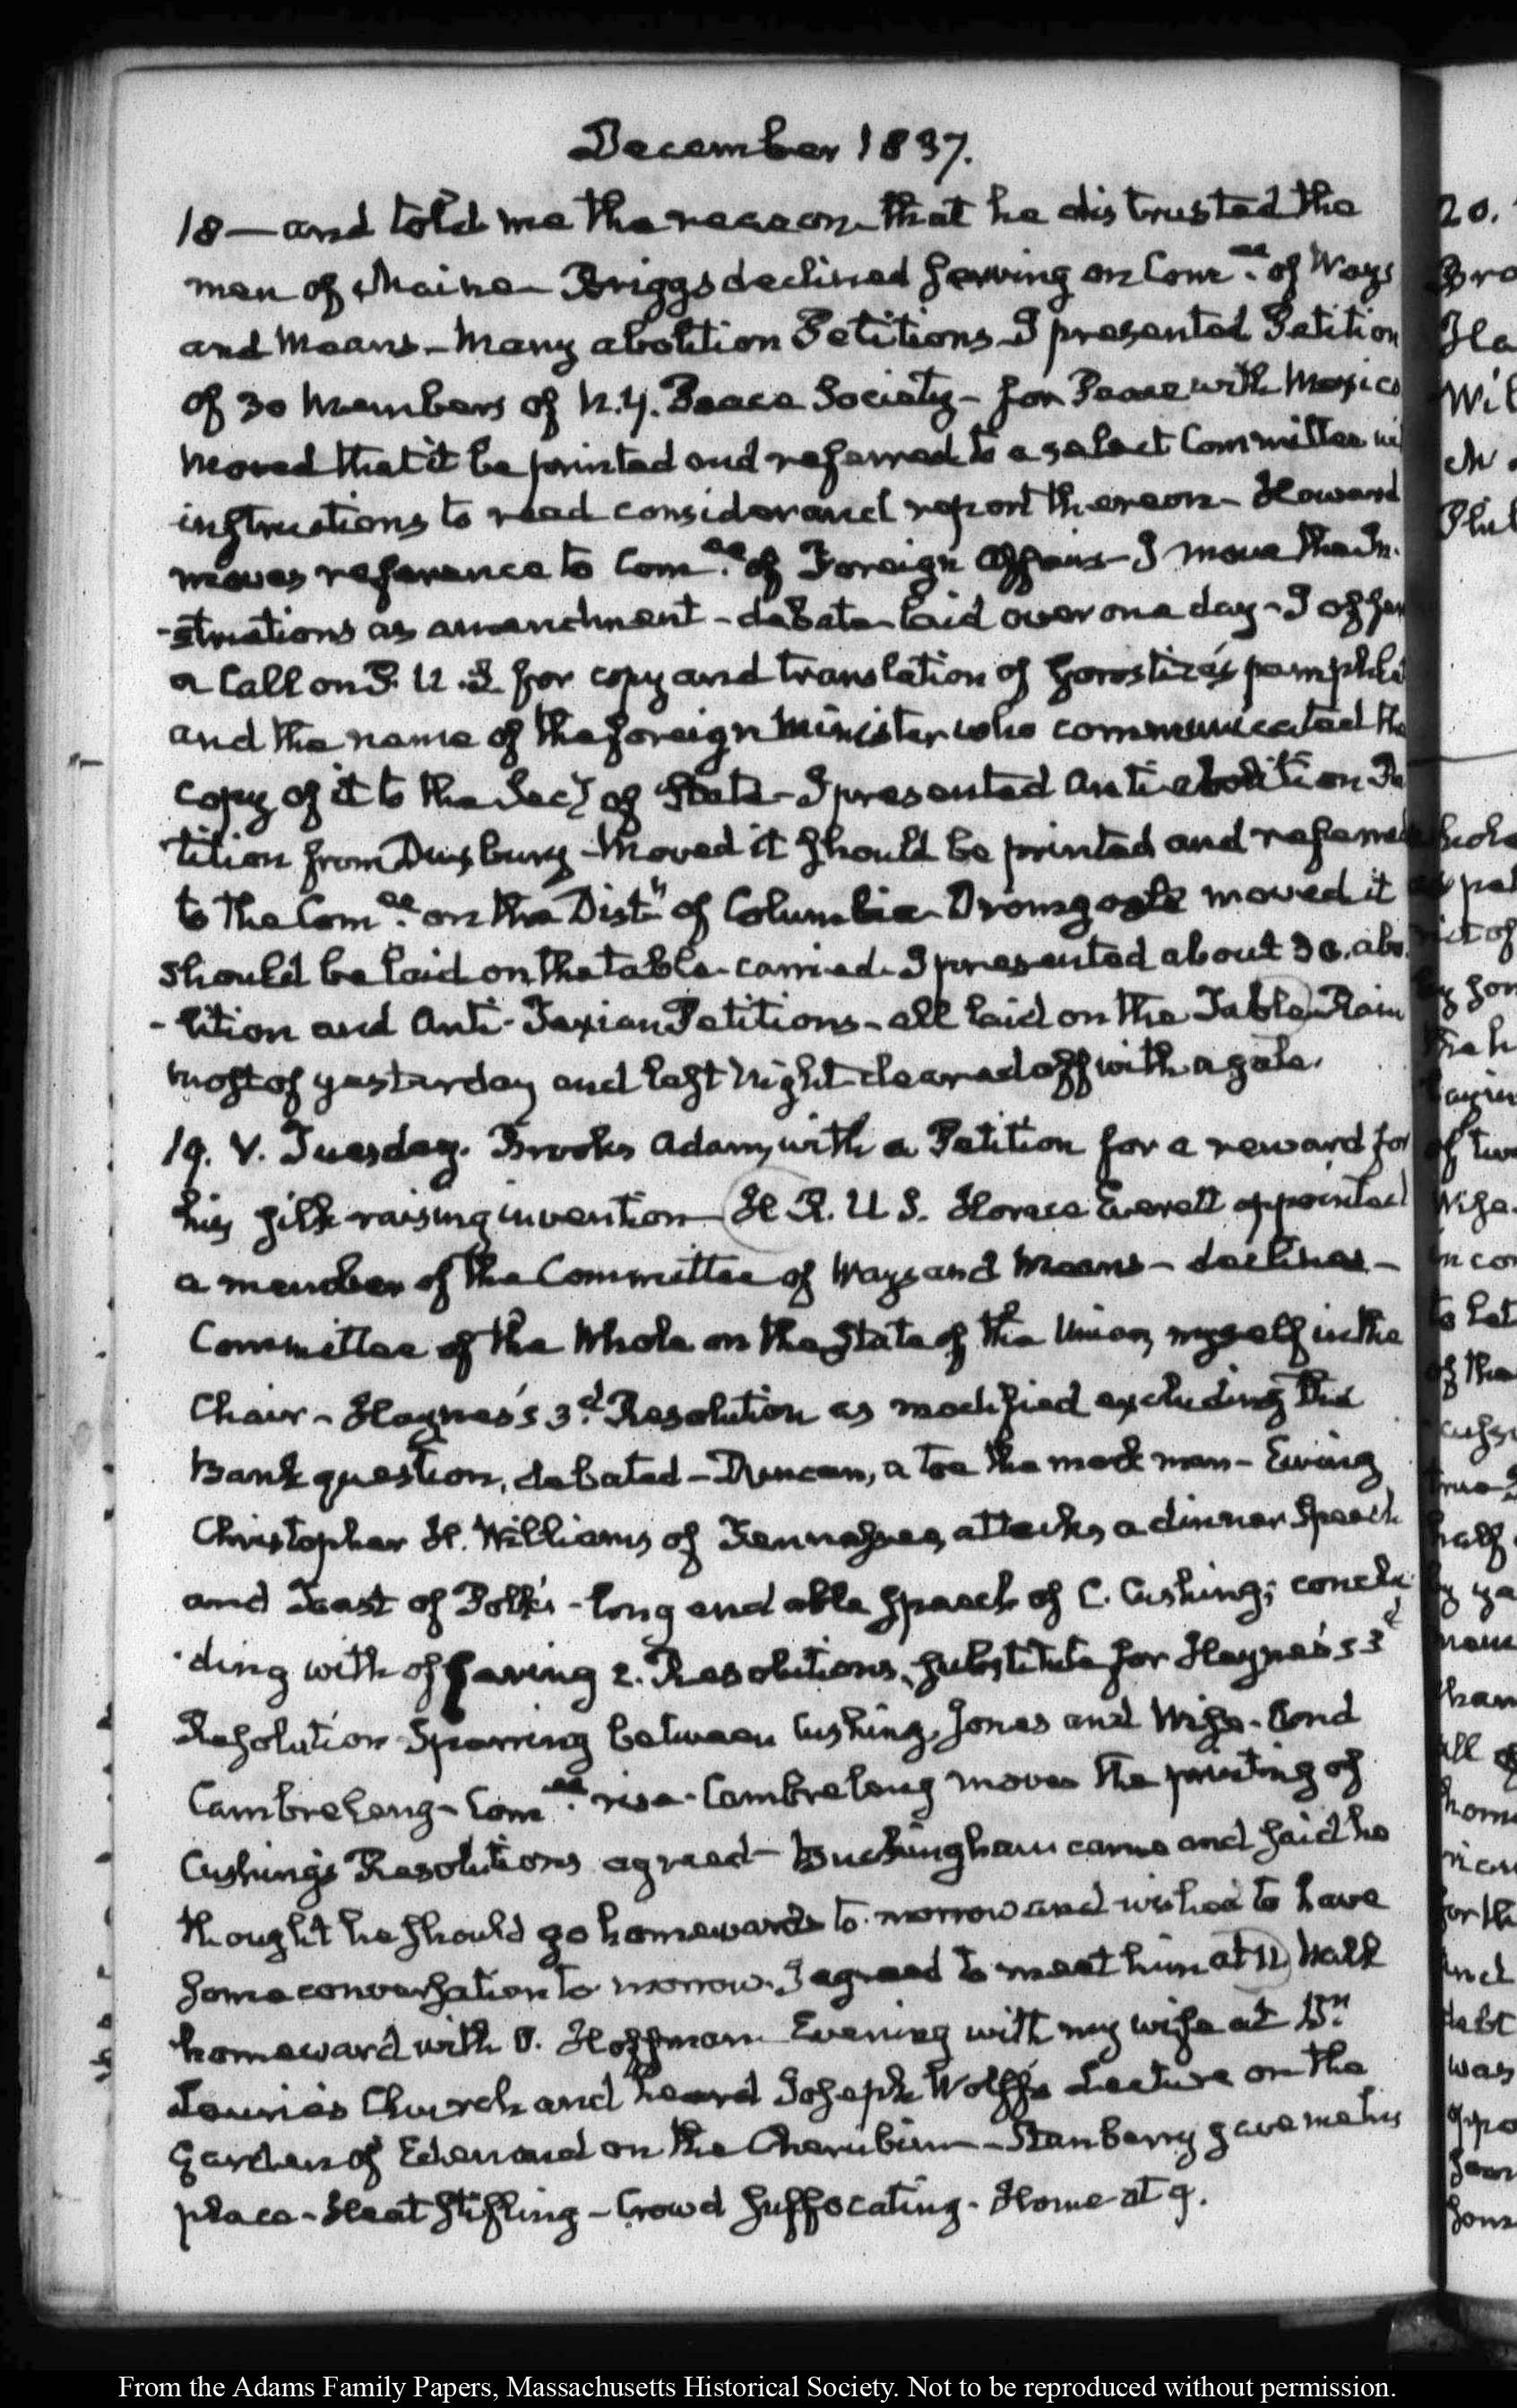 December 1837.
18 — and told me the reason that he distrusted the
men of Maine — Briggs declined serving on Com.ee of Ways
and Means — Many abolition Petitions — I presented Petition
of 30 Members of N.Y. Peace Society — for Peace with Mexico
moved that it be printed and referred to a select Committee wi
instructions to read consider and report thereon — Howard
moves reference to Com.ee of Foreign Affairs — I move the In-
-structions as amendment — debate — laid over one day — I offer
a Call on P. U.S. for copy and translation of Gorostiza's pamphlet
and the name of the foreign Minister who communicated the
copy of it to the Secy of State — I presented Anti-abolition Pe
tition from Duxbury — moved it should be printed and referred
to the Com.ee on the Dist.t of Columbia — Dromgoole moved it
should be laid on the table — carried. I presented about 30. abo-
-lition and Anti-Texian Petitions — all laid on the Table — Rain
most of yesterday and last Night — cleared off with a gale.
19. V. Tuesday. Brooks Adam, with a Petition for a reward for
his silk raising invention — H.R.U.S. Horace Everett appointed
a member of the Committee of Ways and Means — declines —
Committee of the Whole on the State of the Union, myself in the
Chair — Haynes's 3.d Resolution as modified excluding the
Bank question, debated — Duncan, a toe the mark man — Ewing
Christopher H. Williams of Tennessee, attacks a dinner Speech
and Toast of Polk's — long and able speech of C. Cushing; conclu
-ding with offering 2. Resolutions, substitute for Haynes's 3d
Resolution Sparring between Cushing, Jones and Wise — and
Cambreleng — Com.ee rise — Cambreleng moves the printing of
Cushing's Resolutions agreed — Buckingham came and said he
thought he should go homewards to-morrow and wished to have
some conversation to morrow. I agreed to meet him at 12 Walk
homeward with O. Hoffman Evening with my wife at
Laurie's Church and heard Joseph Wolff's Lecture on the
Garden of Eden and on the Cherubim — Stanberry gave me his
place — Heat stifling — Crowd suffocating — Home at 9.
20.
From the Adams Family Papers, Massachusetts Historical Society. Not to be reproduced without permission.